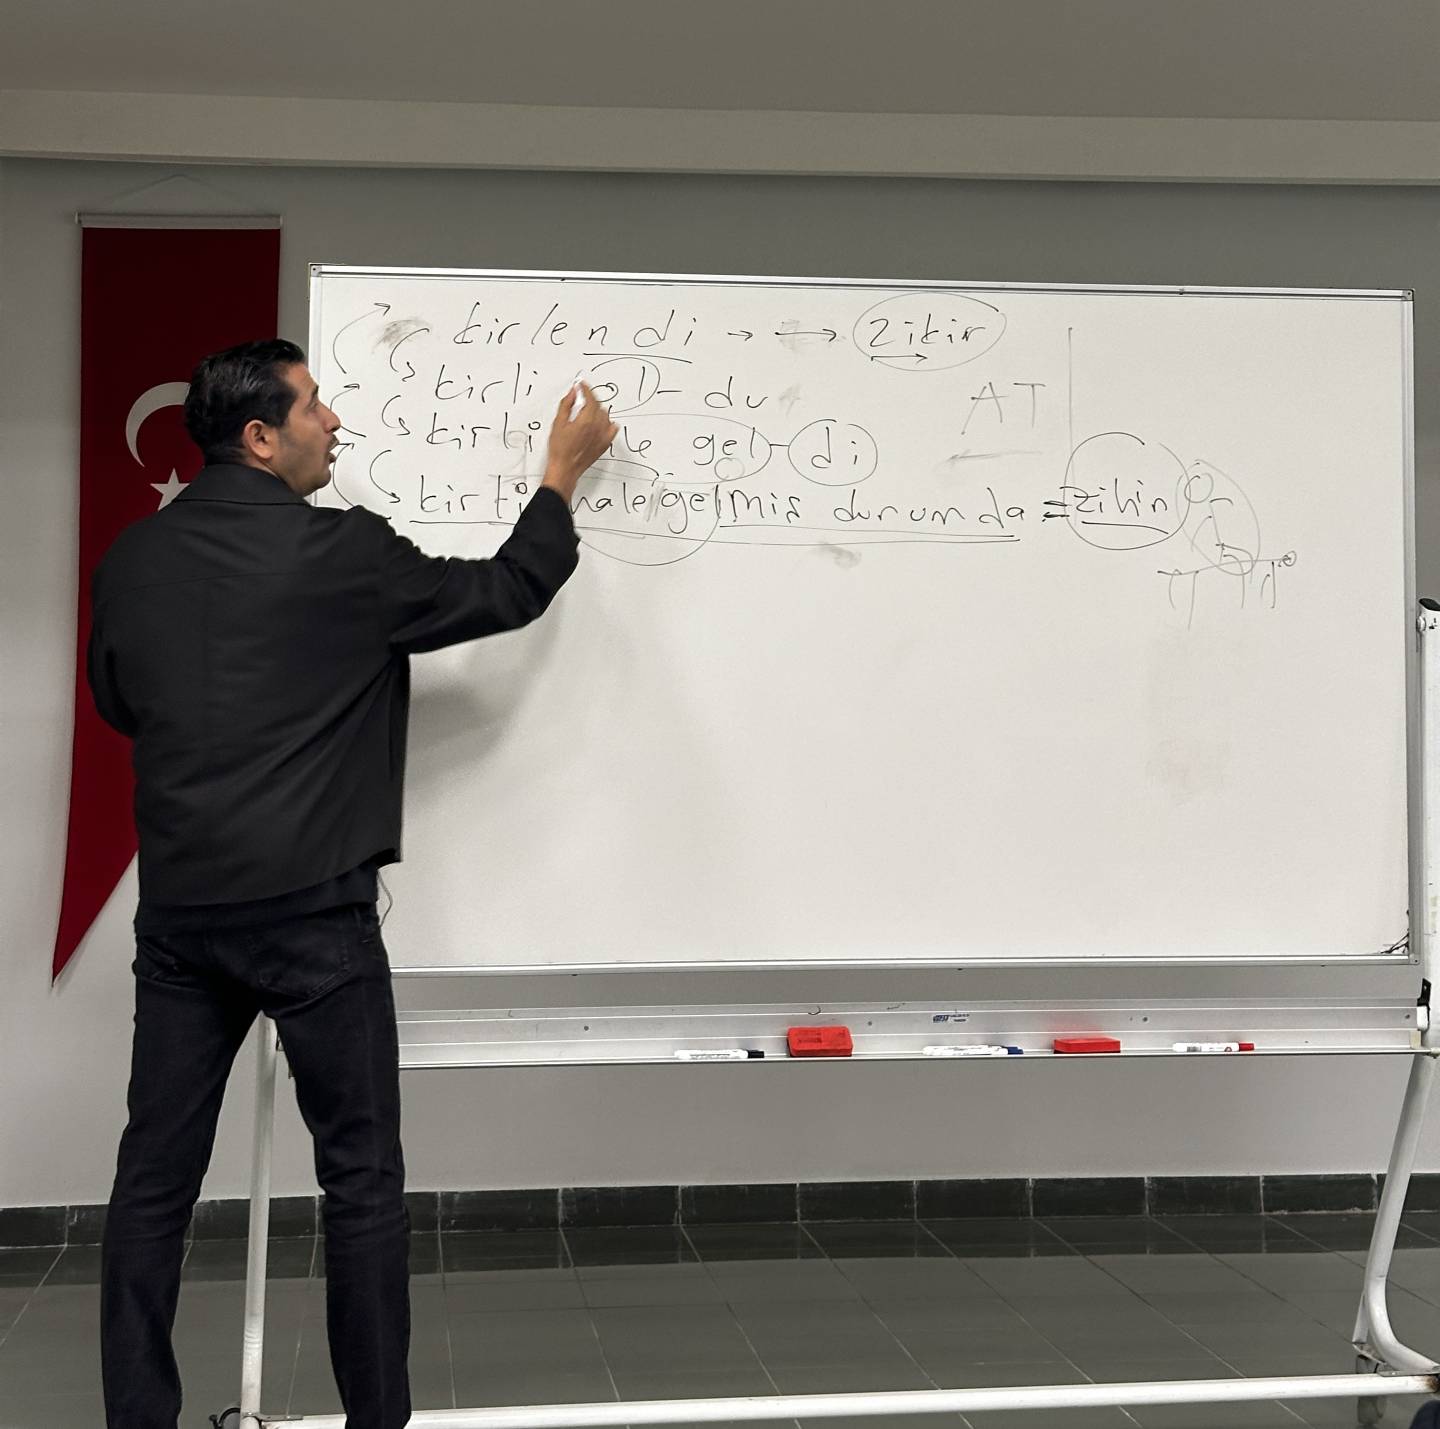 kirlendi → → zikir
kirli ol-du
AT
kirli gel-di
kirli hale gelmiş durumda = zihin